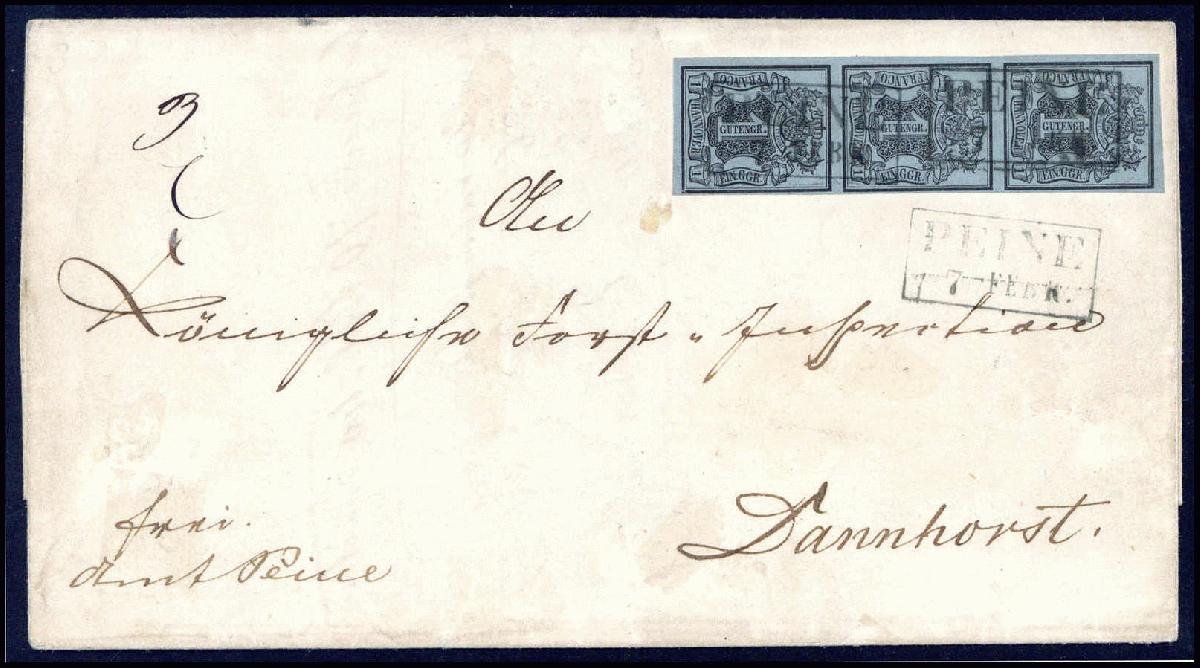 FRANCO FRANCO FRANCO
HANNOVER HANNOVER HANNOVER
1 1 1
GUTENGR. GUTENGR. GUTENGR.
EIN GGR. EIN GGR. EIN GGR.
3
An
PEINE
7 FEBR.
Königliche Forst-Inspection
frei.
Amt Peine
Dannhorst.